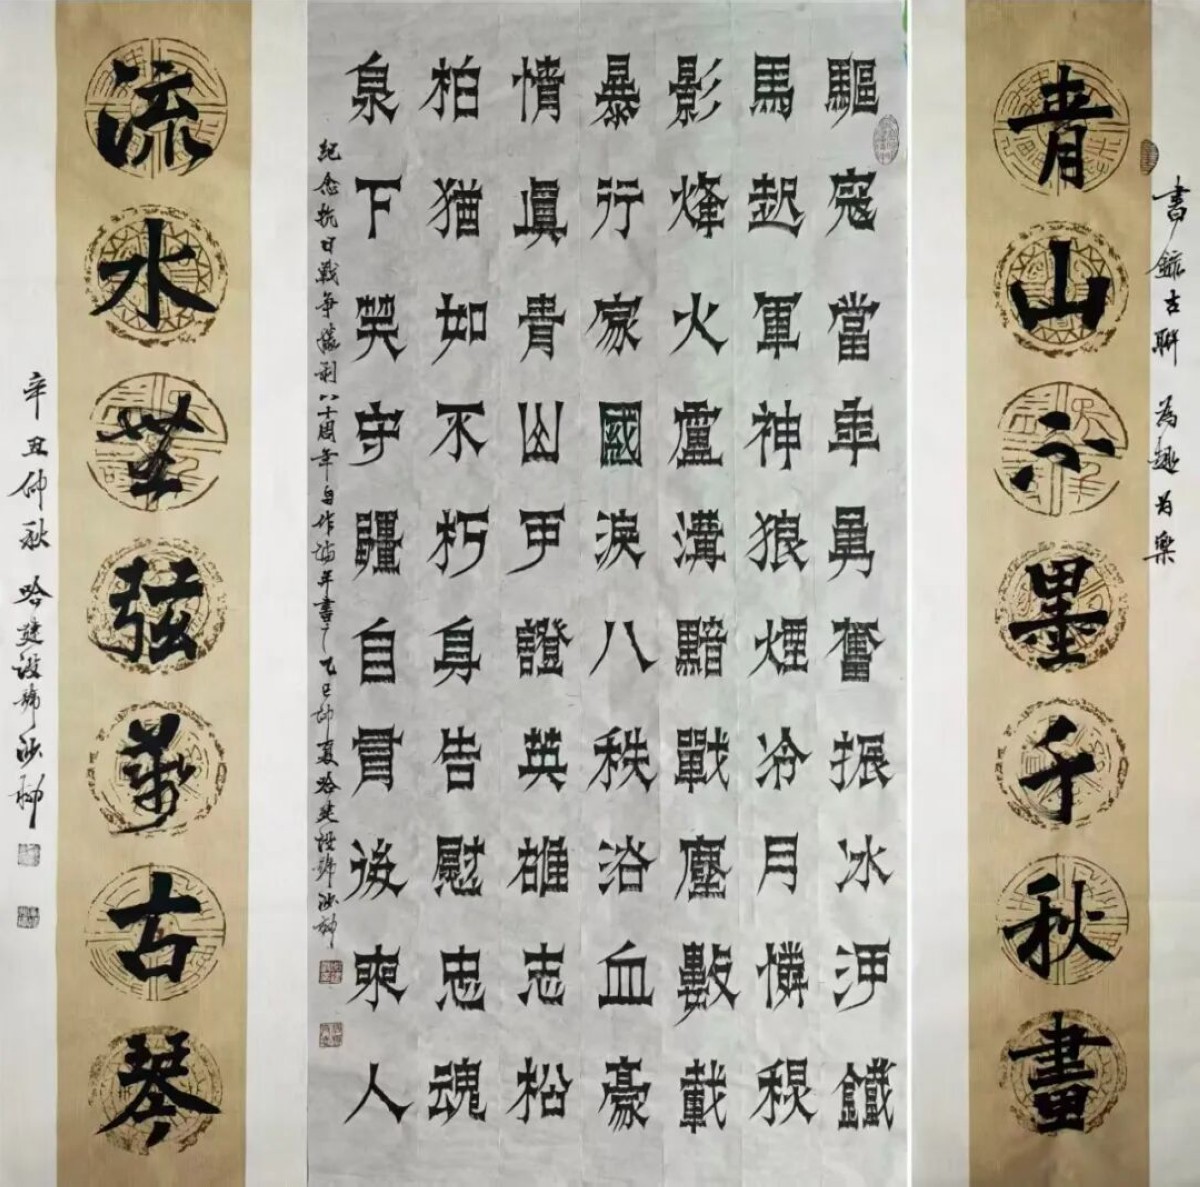 青山不墨千秋畫
書錄古聯為趣為樂
驅寇當年勇奮振冰河鐵
馬起軍神狼煙冷月憐
影烽火盧溝黯戰塵數載
暴行家國淚八秩浴血豪
情眞青山可證英雄志松
柏猶如不朽身告慰忠魂
泉下笑守疆自後來人
紀念抗日戰爭勝利八十周年自作詩書之乙巳仲夏哈建設號沙柳
流水無弦萬古琴
辛丑仲秋哈建設號沙柳